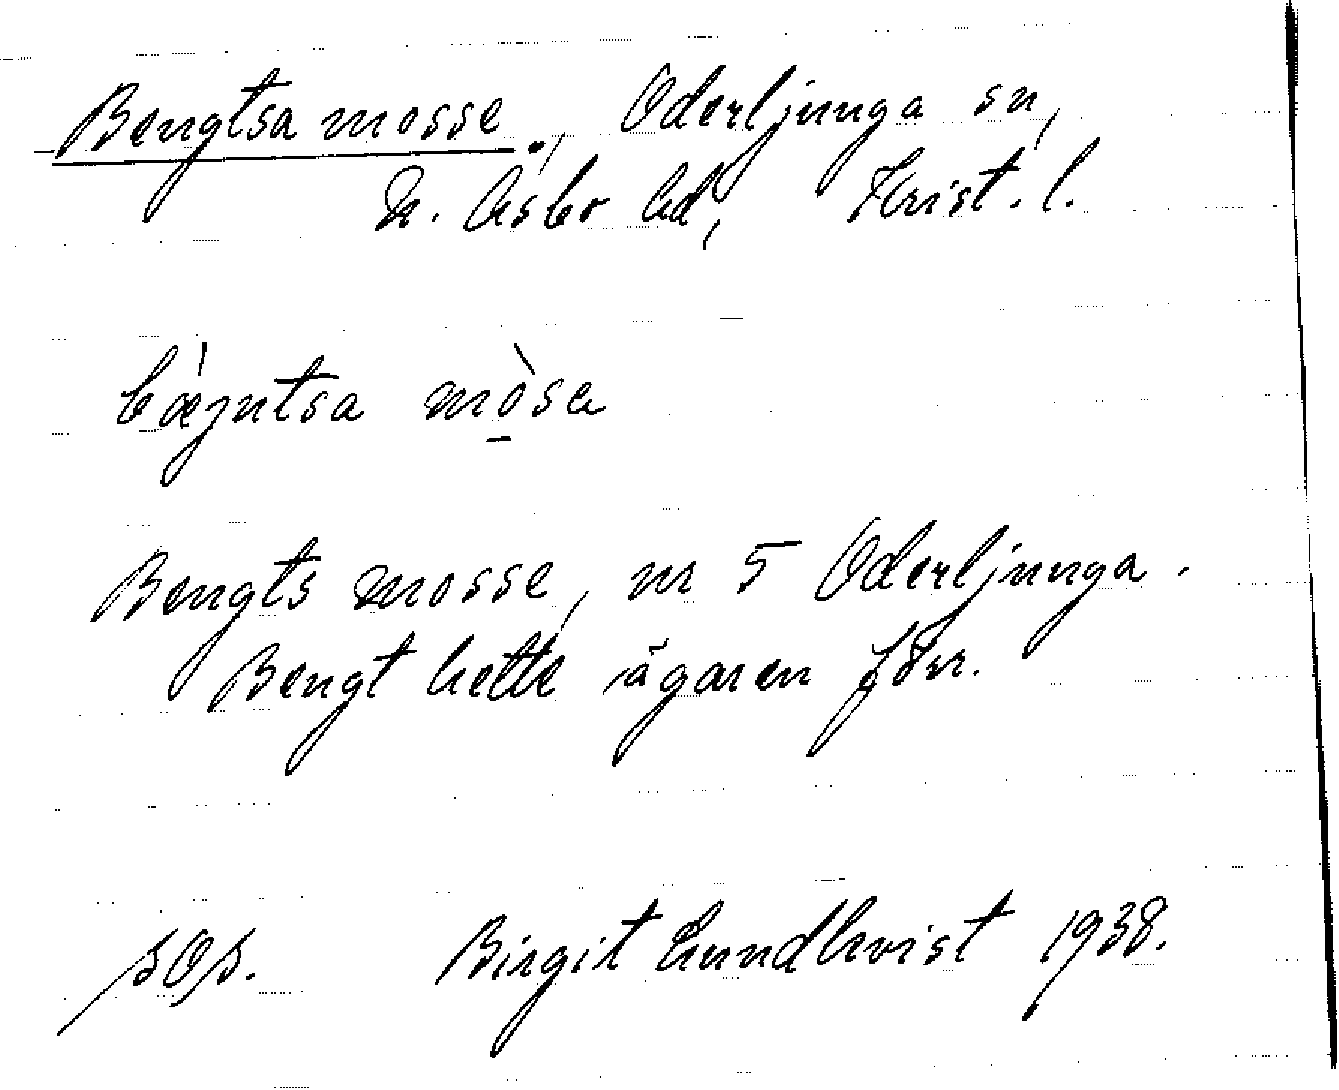 Bengtsa mosse., Oderljunga sn,
N. Åsbo hd, Krist. l.
bæ̀jntsa mò̱sa
Bengts mosse, nr 5 Oderljunga.
Bengt hette ägaren förr.
Birgit Lundkvist 1938.